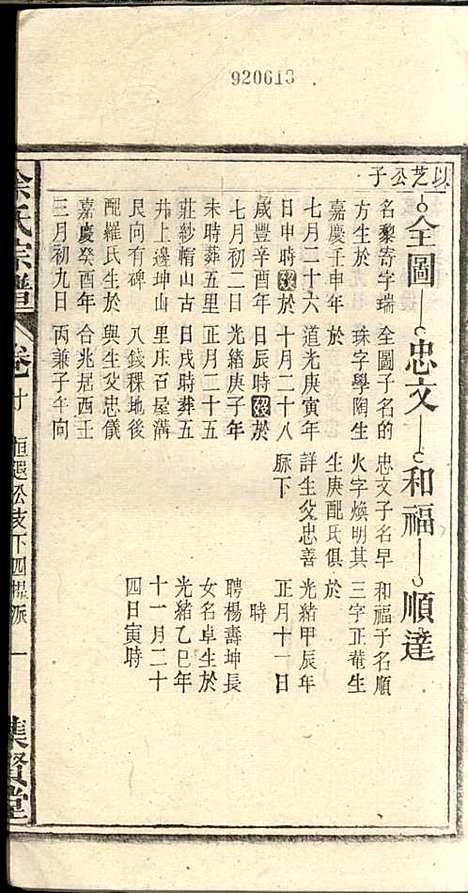 920613
以芝公子
全圖
忠文
和福
順達
名黎寄字瑞
方生於
嘉慶壬申年
七月二十六
日申時歿於
咸豐辛酉年
七月初二日
未時葬五里
莊紗帽山古
井上邊坤山
艮向有碑
配羅氏生於
嘉慶癸酉年
三月初九日
全圖子名的
珠字學陶生
於
道光庚寅年
十月二十八
日辰時歿於
光緒庚子年
正月二十五
日戌時葬五
里庄百屋溝
八錢稞地後
與生父忠儀
合兆居酉王
丙兼子午向
忠文子名早
火字煥明其
生庚配氏俱
詳生父忠善
脈下
和福子名順
三字正菴生
於
光緒甲辰年
正月十一日
時
聘楊壽坤長
女名卓生於
光緒乙巳年
十一月二十
四日寅時
余氏宗譜
卷十
恒遇公支下四樂派
一
集賢堂